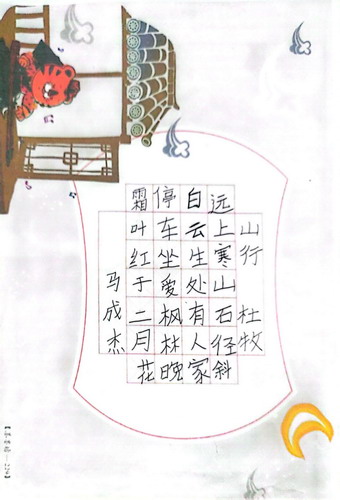 山行
杜牧
远上寒山石径斜
白云生处有人家
停车坐爱枫林晚
霜叶红于二月花
马成杰